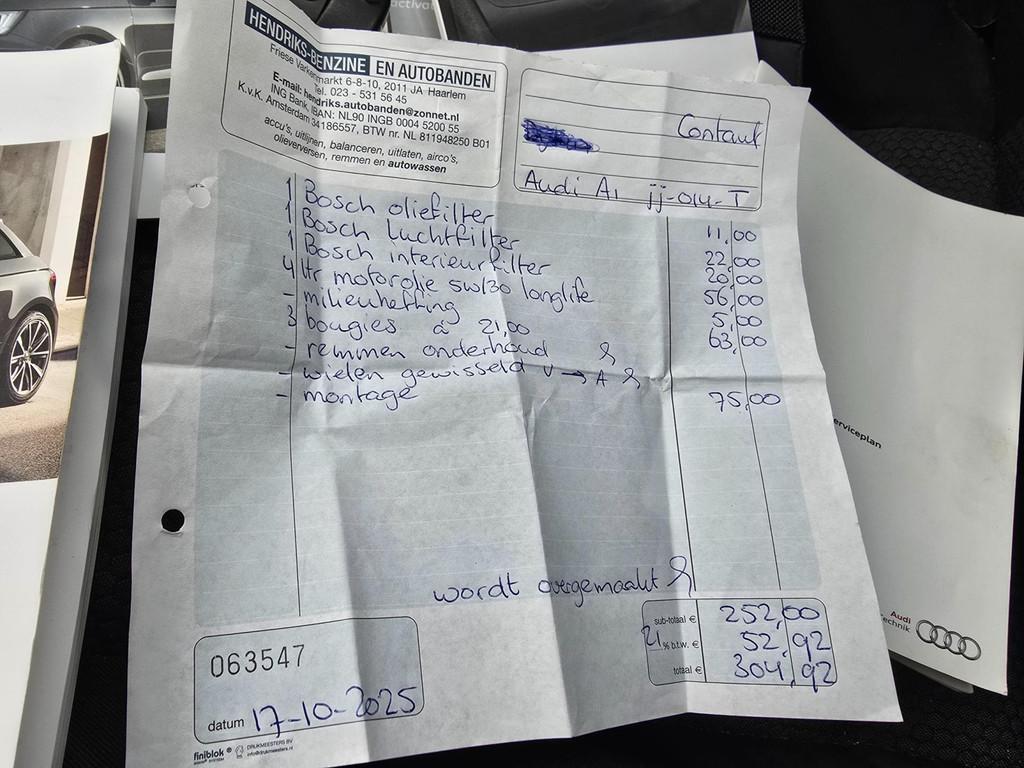 activa
HENDRIKS-BENZINE EN AUTOBANDEN
Friese Varkenmarkt 6-8-10, 2011 JA Haarlem
Tel. 023 - 531 56 45
E-mail: hendriks.autobanden@zonnet.nl
ING Bank, IBAN: NL90 INGB 0004 5200 55
K.v.K. Amsterdam 34186557, BTW nr. NL 811948250 B01
accu's, uitlijnen, balanceren, uitlaten, airco's,
olieverversen, remmen en autowassen
Contant
Audi A1 jj-014-T
1 Bosch oliefilter 11,00
1 Bosch luchtfilter 22,00
1 Bosch interieurfilter 20,00
4 ltr motorolie 5w/30 longlife 56,00
- milieuheffing 5,00
3 bougies à 21,00 63,00
- remmen onderhoud
- wielen gewisseld V → A
- montage 75,00
wordt overgemaakt
sub-totaal € 252,00
21 % b.t.w. € 52,92
totaal € 304,92
063547
datum 17-10-2025
finiblok ®
DRUKMEESTERS BV
info@drukmeesters.nl
erviceplan
Audi
echnik